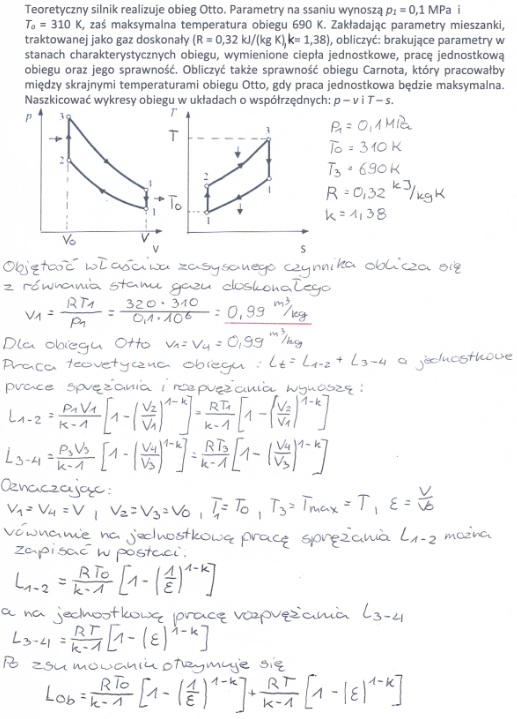 Teoretyczny silnik realizuje obieg Otto. Parametry na ssaniu wynoszą p₁ = 0,1 MPa i
Tₒ = 310 K, zaś maksymalna temperatura obiegu 690 K. Zakładając parametry mieszanki,
traktowanej jako gaz doskonały (R = 0,32 kJ/(kg K), k= 1,38), obliczyć: brakujące parametry w
stanach charakterystycznych obiegu, wymienione ciepła jednostkowe, pracę jednostkową
obiegu oraz jego sprawność. Obliczyć także sprawność obiegu Carnota, który pracowałby
między skrajnymi temperaturami obiegu Otto, gdy praca jednostkowa będzie maksymalna.
Naszkicować wykresy obiegu w układach o współrzędnych: p – v i T – s.
p 3 2 1 1 V₀ V v
T T 3 2 1 T₀ 1 s
P₁ = 0,1 MPa
T₀ = 310 K
T₃ = 690 K
R = 0,32 kJ/kgK
k = 1,38
Objętość właściwa zasysanego czynnika oblicza się
z równania stanu gazu doskonałego
V₁ = RT₁/p₁ = 320 · 310/0,1·10⁶ = 0,99 m³/kg
Dla obiegu Otto V₁ = V₄ = 0,99 m³/kg
Praca teoretyczna obiegu : Lt = L₁₋₂ + L₃₋₄ a jednostkowe
prace sprężania i rozprężania wynoszą :
L₁₋₂ = P₁V₁/k-1 [1 - (V₂/V₁)^1-k] = RT₁/k-1 [1 - (V₂/V₁)^1-k]
L₃₋₄ = P₃V₃/k-1 [1 - (V₄/V₃)^1-k] = RT₃/k-1 [1 - (V₄/V₃)^1-k]
Oznaczając:
V₁ = V₄ = V , V₂ = V₃ = V₀ , T₁ = T₀ , T₃ = Tmax = T , ε = V/V₀
równanie na jednostkową pracę sprężania L₁₋₂ można
zapisać w postaci:
L₁₋₂ = RT₀/k-1 [1 - (1/ε)^1-k]
a na jednostkową pracę rozprężania L₃₋₄
L₃₋₄ = RT/k-1 [1 - (ε)^1-k]
Po zsumowaniu otrzymuje się
Lob = RT₀/k-1 [1 - (1/ε)^1-k] + RT/k-1 [1 - (ε)^1-k]